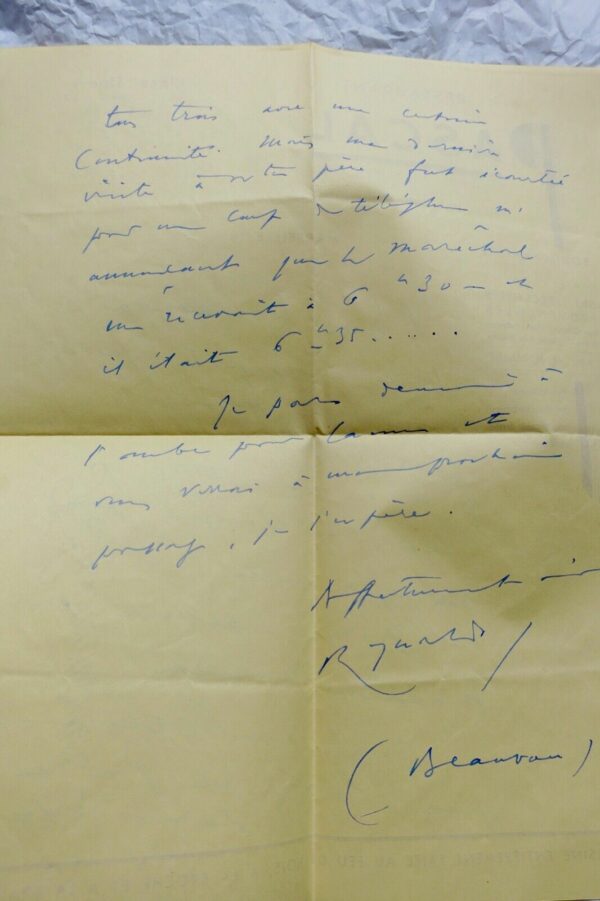 tous trois avec une certaine
Continuité. Mais ma dernière
visite à ton père fut écourtée
pour un coup de téléphone m'
annonçant que le Maréchal
me recevait à 6 h 30 — et
il était 6 h 35......
Je pars demain à
l'aube pour Cannes et
vous verrai à mon prochain
passage, je l'espère.
Affectueusement
Reynaldo
(Beauvau)